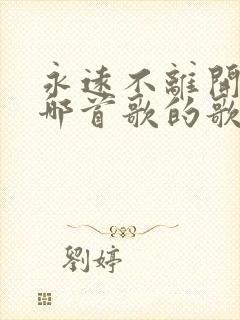 永遠不離開
哪首歌的歌
劉婷